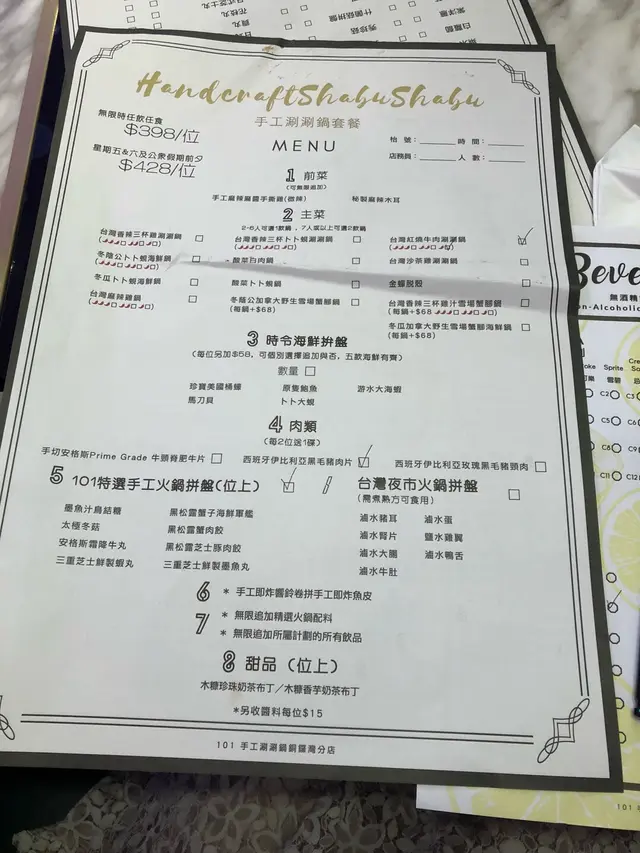 HandcraftShabuShabu
手工涮涮鍋套餐
MENU
無限時任飲任食
$398/位
星期五&六及公眾假期前夕
$428/位
枱 號：
時 間：
店務員：
人 數：
1 前菜
(可無限追加)
手工麻辣麻醬手撕雞(微辣)
秘製麻辣木耳
2 主菜
2-6人可選1款鍋，7人或以上可選2款鍋
台灣香辣三杯雞涮涮鍋
台灣香辣三杯卜卜蜆涮涮鍋
台灣紅燒牛肉涮涮鍋
冬陰公卜卜蜆海鮮鍋
酸菜白肉鍋
台灣沙茶雞涮涮鍋
冬瓜卜卜蜆海鮮鍋
酸菜卜卜蜆鍋
金蟬脫殼
台灣麻辣雞鍋
冬蔭公加拿大野生雪場蟹腳鍋
(每鍋+$68)
台灣香辣三杯雞汁雪場蟹腳鍋
(每鍋+$68)
冬瓜加拿大野生雪場蟹腳海鮮鍋
(每鍋+$68)
3 時令海鮮拼盤
(每位另加$58，可個別選擇追加與否，五款海鮮有齊)
數量
珍寶美國桶蠔
原隻鮑魚
游水大海蝦
馬刀貝
卜卜大蜆
4 肉類
(每2位送1碟)
手切安格斯Prime Grade 牛頸脊肥牛片
西班牙伊比利亞黑毛豬肉片
西班牙伊比利亞玫瑰黑毛豬頸肉
5 101特選手工火鍋拼盤(位上)
/
台灣夜市火鍋拼盤
(需煮熟方可食用)
墨魚汁烏結糖
黑松露蟹子海鮮軍艦
滷水豬耳
滷水蛋
太極冬菇
黑松露蟹肉餃
滷水腎片
鹽水雞翼
安格斯霜降牛丸
黑松露芝士豚肉餃
滷水大腸
滷水鴨舌
三重芝士鮮製蝦丸
三重芝士鮮製墨魚丸
滷水牛肚
6 * 手工即炸響鈴卷拼手工即炸魚皮
7 * 無限追加精選火鍋配料
* 無限追加所屬計劃的所有飲品
8 甜品 (位上)
木糠珍珠奶茶布丁／木糠香芋奶茶布丁
*另收醬料每位$15
101 手工涮涮鍋銅鑼灣分店
Beve
無酒精
on-Alcoholic
oke
Sprite
可樂
雪碧
C2
C3
C5
C6
C8
C9
C11
C12
101